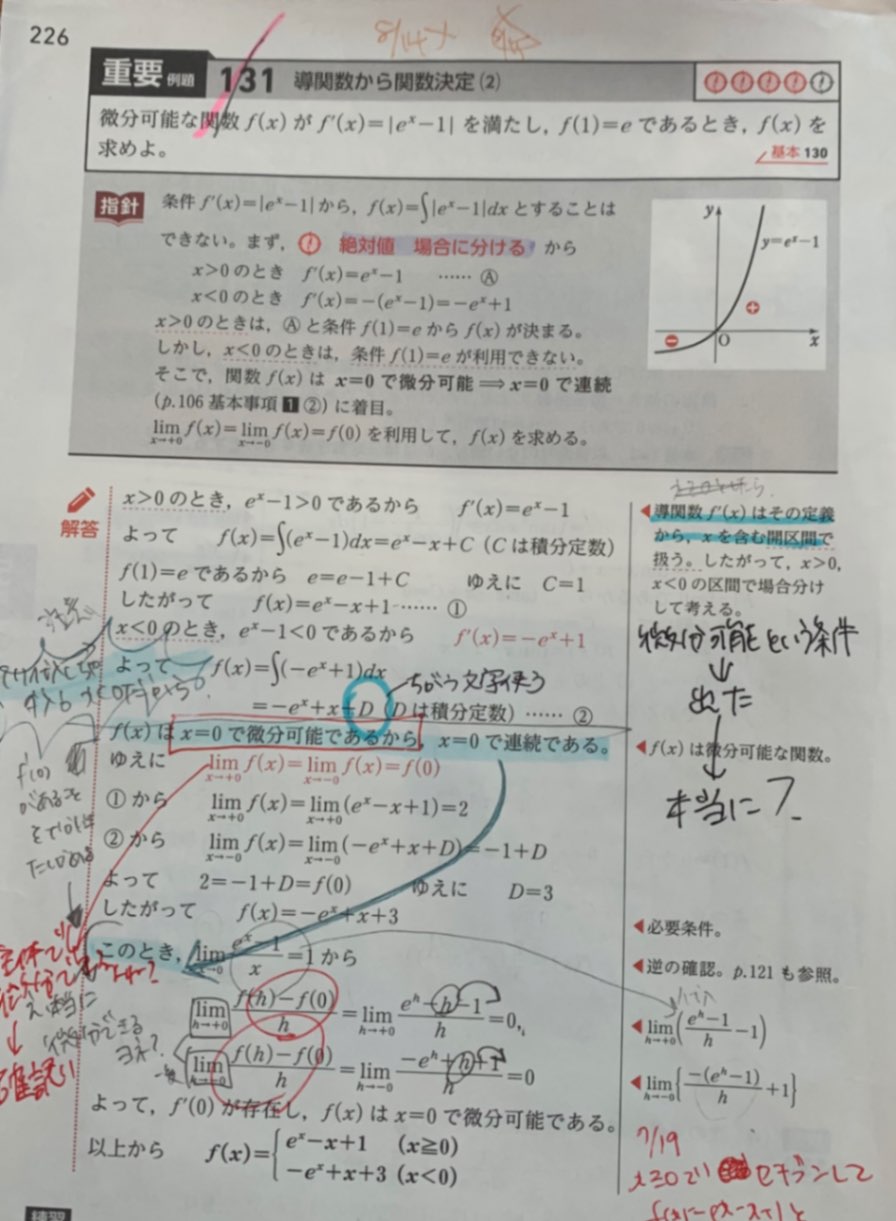 226
重要 例題 131 導関数から関数決定(2)
微分可能な関数 f(x) が f′(x)=|eˣ−1| を満たし，f(1)=e であるとき，f(x) を
求めよ。
基本 130
指針 条件 f′(x)=|eˣ−1| から，f(x)=∫|eˣ−1|dx とすることは
できない。まず， 絶対値 場合に分ける から
x>0 のとき f′(x)=eˣ−1 …… Ⓐ
x<0 のとき f′(x)=−(eˣ−1)=−eˣ+1
x>0 のときは，Ⓐ と条件 f(1)=e から f(x) が決まる。
しかし，x<0 のときは，条件 f(1)=e が利用できない。
そこで，関数 f(x) は x=0 で微分可能 ⟹ x=0 で連続
(p.106 基本事項 1 ②) に着目。
lim_{x→+0} f(x)=lim_{x→−0} f(x)=f(0) を利用して，f(x) を求める。
y
y=eˣ−1
O
x
解答
x>0 のとき，eˣ−1>0 であるから f′(x)=eˣ−1
よって f(x)=∫(eˣ−1)dx=eˣ−x+C (C は積分定数)
f(1)=e であるから e=e−1+C ゆえに C=1
したがって f(x)=eˣ−x+1 …… ①
x<0 のとき，eˣ−1<0 であるから f′(x)=−eˣ+1
よって f(x)=∫(−eˣ+1)dx
ちがう文字使う
=−eˣ+x+D (D は積分定数) …… ②
f(x) は x=0 で微分可能であるから，x=0 で連続である。
ゆえに lim_{x→+0} f(x)=lim_{x→−0} f(x)=f(0)
① から lim_{x→+0} f(x)=lim_{x→+0}(eˣ−x+1)=2
② から lim_{x→−0} f(x)=lim_{x→−0}(−eˣ+x+D)=−1+D
よって 2=−1+D=f(0) ゆえに D=3
したがって f(x)=−eˣ+x+3
このとき，lim_{x→0} (eˣ−1)/x=1 から
lim_{h→+0} (f(h)−f(0))/h=lim_{h→+0} (eʰ−h−1)/h=0,
lim_{h→−0} (f(h)−f(0))/h=lim_{h→−0} (−eʰ+h+1)/h=0
よって，f′(0) が存在し，f(x) は x=0 で微分可能である。
以上から f(x)={eˣ−x+1 (x≧0)
−eˣ+x+3 (x<0)
◀導関数 f′(x) はその定義
から，x を含む開区間で
扱う。したがって，x>0，
x<0 の区間で場合分け
して考える。
微分可能という条件
↓
出た
◀f(x) は微分可能な関数。
↓
本当に?
◀必要条件。
◀逆の確認。p.121 も参照。
◀lim_{h→+0}((eʰ−1)/h−1)
◀lim_{h→−0}{−(eʰ−1)/h+1}
7/19
f'(0)
があること
本当に
微分できる
確認
練習